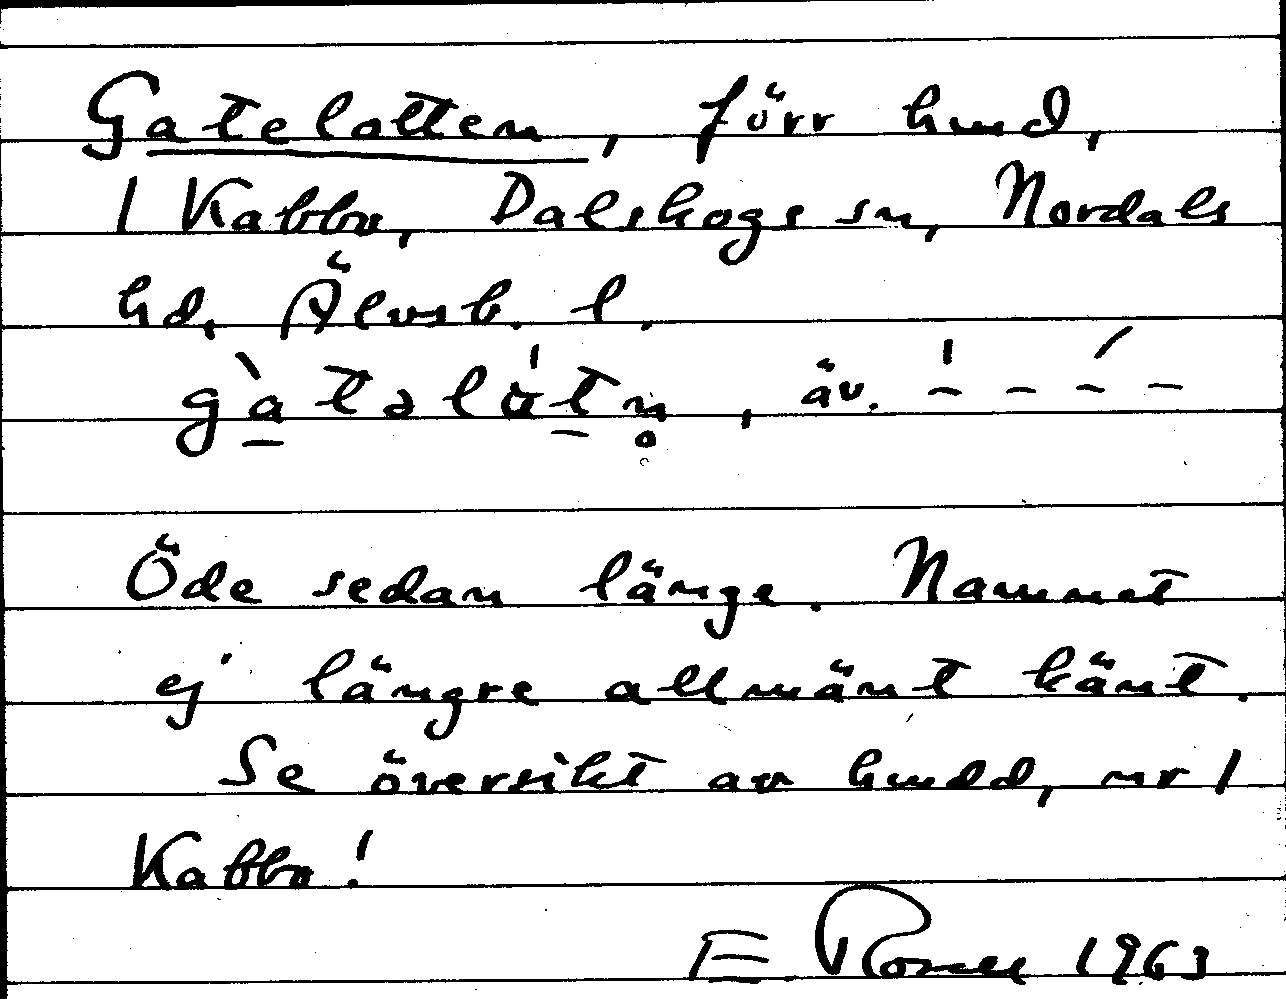 Gatelotten, förr hmd,
1 Kabbo, Dalskogs sn, Nordals
hd, Älvsb. l.
Öde sedan länge. Namnet
ej längre allmänt känt.
Se översikt av hmdd, nr 1
Kabbo!
E. 1963